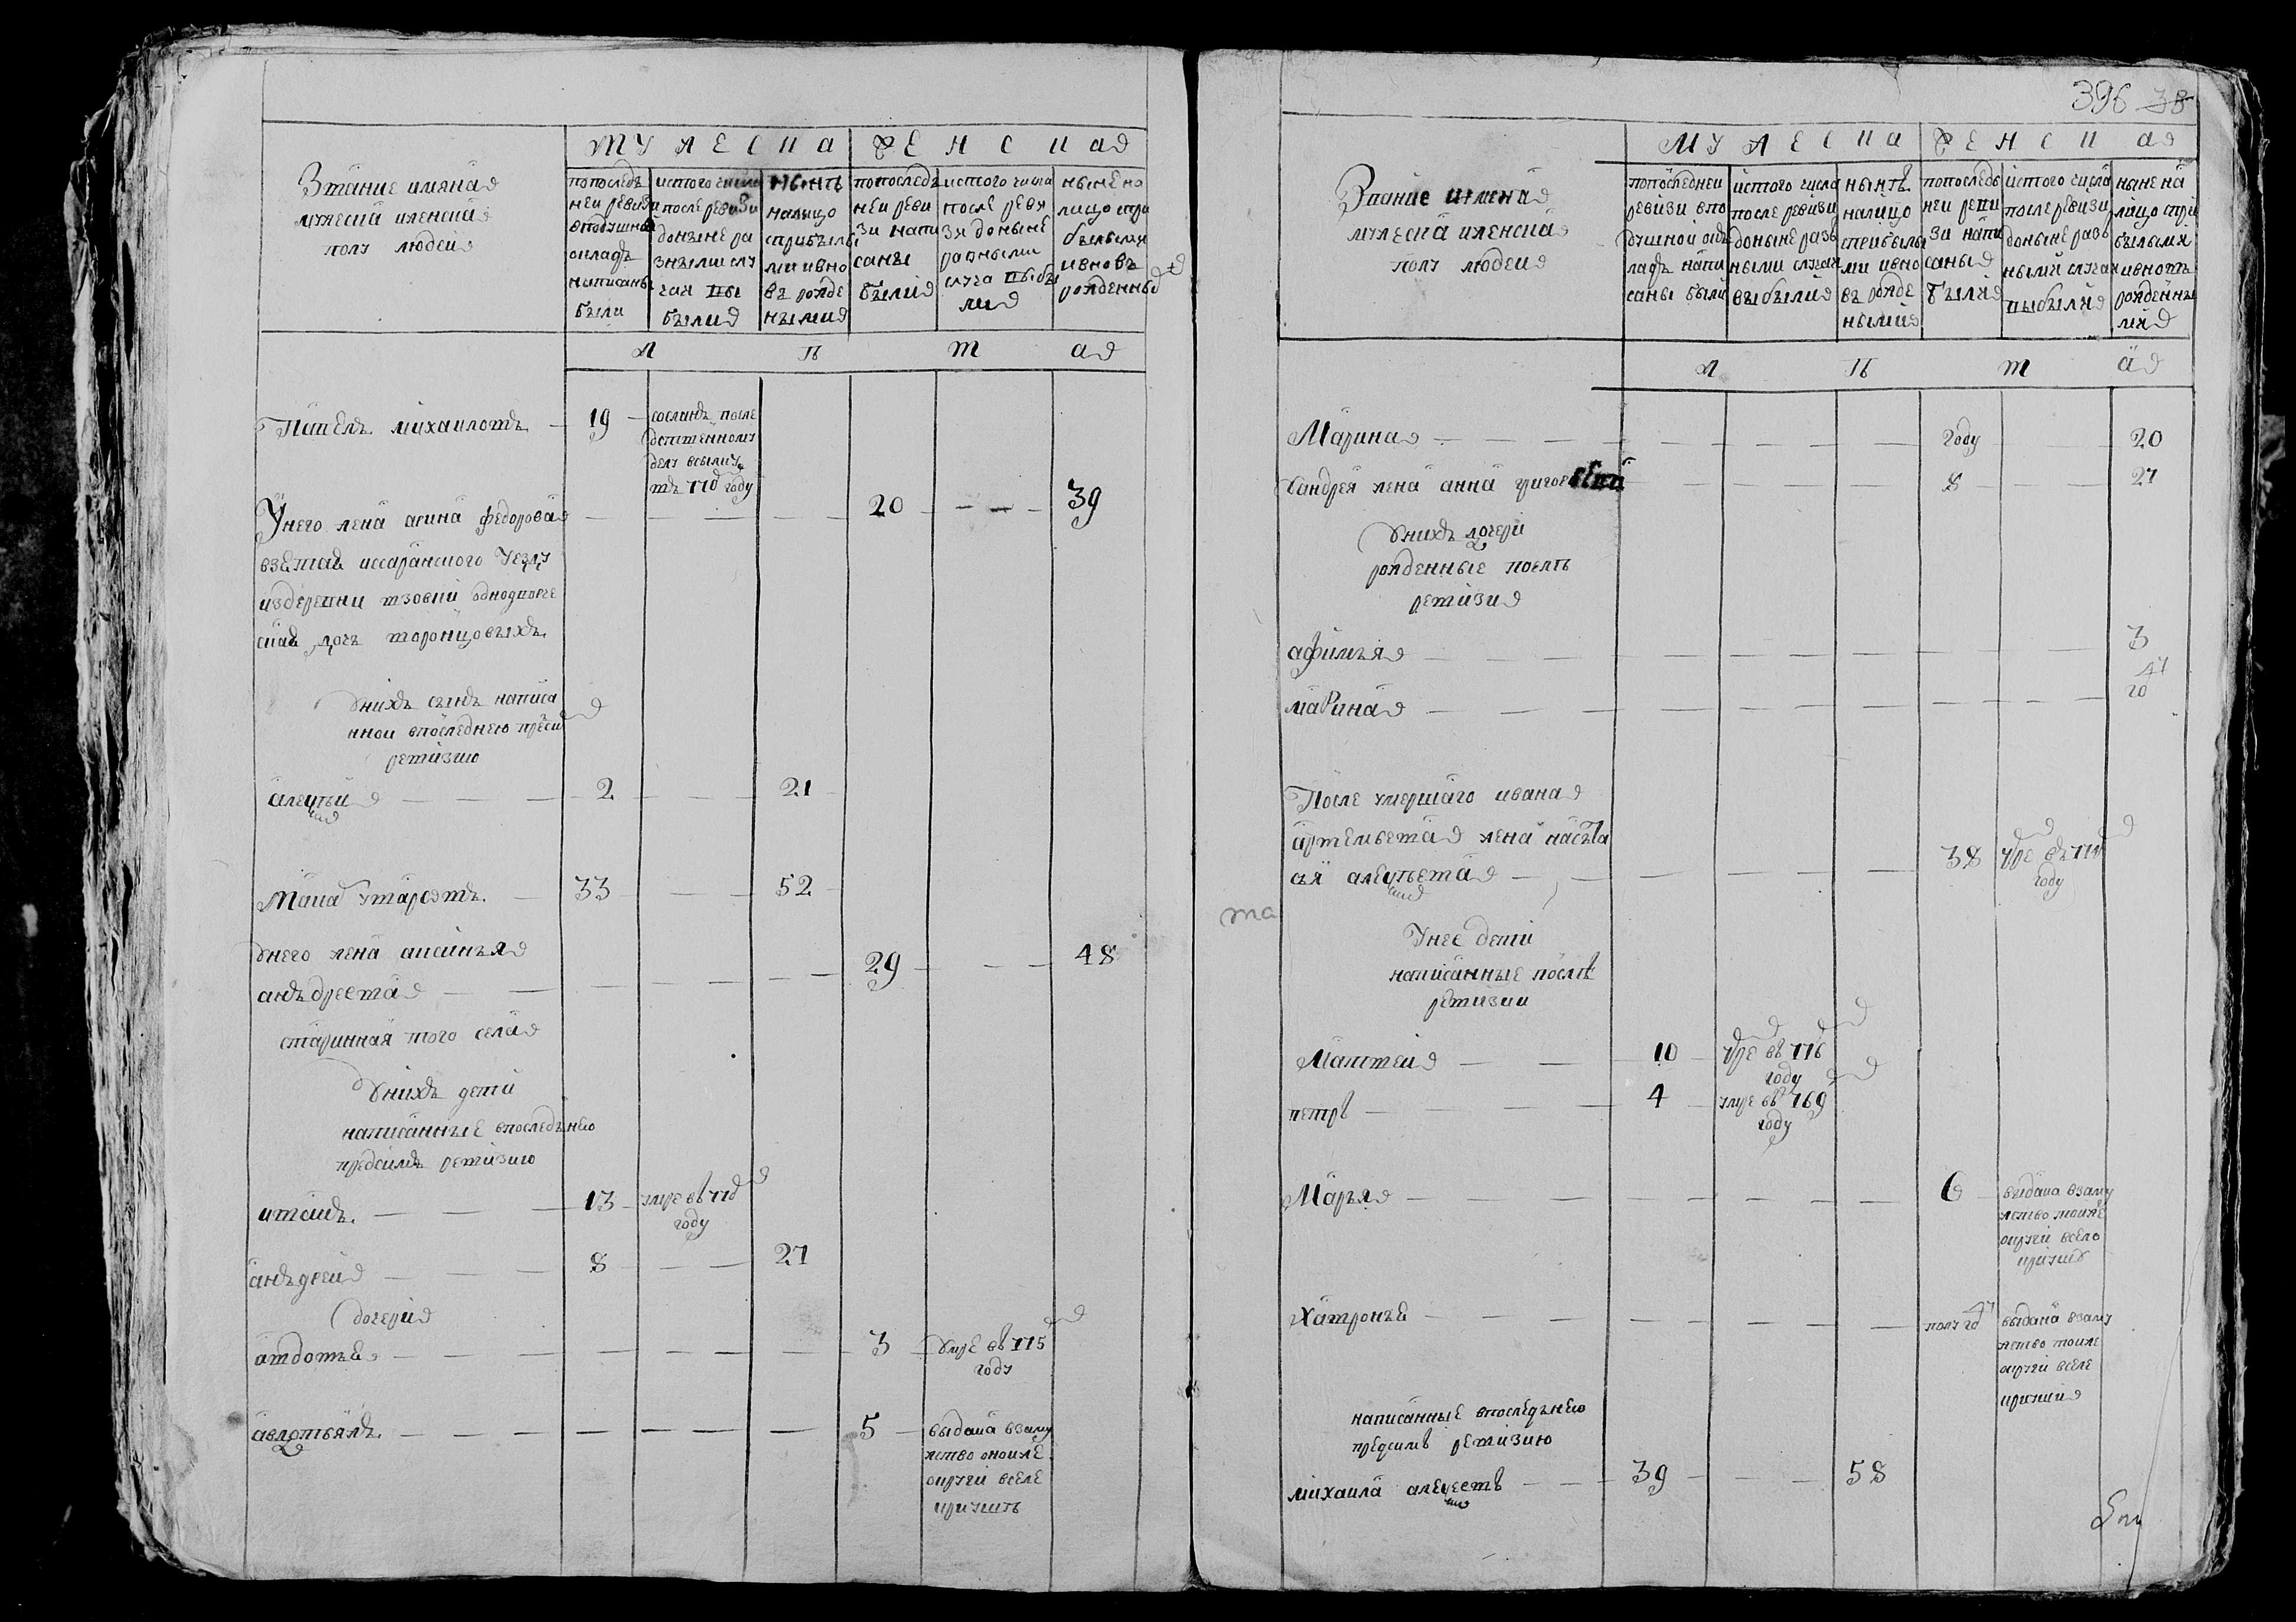 Звание имяна
мужеска иженска
полу людей
МУЖЕСКА
ЖЕНСКА
попоследъ
ней ревизи
вподушной
окладъ
написаны
были
истого числа
после ревизи
донынѣ ра
зными слу
чаи вы
были
нынѣ
налицо
сприбылы
ми ивно
въ рожде
ными
попоследъ
ней реви
зи напи
саны
были
истого числа
после реви
зи доныне
разными
случа выбы
ли
ныне на
лицо спри
былыми
ивновъ
рожденны
Л В Т А
Павелъ михаиловъ 19
сосланъ после
делу всылку
въ 770 году
Унего жена арина федорова 20 39
взетая иссаранского уезду
издеревни однодворче
ская дочь воронцовыхъ
Унихъ сынъ написа
нной впоследнею пресим
ревизию
алексей 2 21
33 52
Унего жена аксинья
андреева 29 48
старинная того села
Унихъ дети
написанные впоследънею
предсимъ ревизию
иванъ 13 умре въ 770
году
анъдрей 8 27
дочери
авдотья 3 умре въ 775
году
5 выдана взаму
жство
округи вселе
396 38
Звание имена
мужеска иженска
полу людей
МУЖЕСКА
ЖЕНСКА
попоследней
ревизи впо
душной ок
ладъ напи
саны были
истого числа
после ревизи
доныне разъ
ными случаи
выбыли
нынѣ
налицо
сприбылы
ми ивно
въ рожде
ными
попоследъ
ней реви
зи напи
саны
были
истого числа
после ревизи
доныне разъ
ными случаи
выбыли
ныне на
лицо спри
былыми
ивновъ
рожденны
ми
Л В Т А
Марина году 20
Уандрея жена анна григорьева 8 27
Унихъ дочери
рожденные послѣ
ревизи
афимья 3
марина
После умершаго ивана
артемьева жена настa
сья алексеева 38 умре въ
году
Унее дети
написанные послѣ
ревизии
Матвей 10 умре въ 776
году
петръ 4 умре въ 769
году
Марья 6 выдана взаму
жство тоиже
округи село
Хавронья полу выдана взаму
жство тоиже
округи вселе
написанные впоследънею
предсимъ ревизию
михаила алексеевъ 39 58